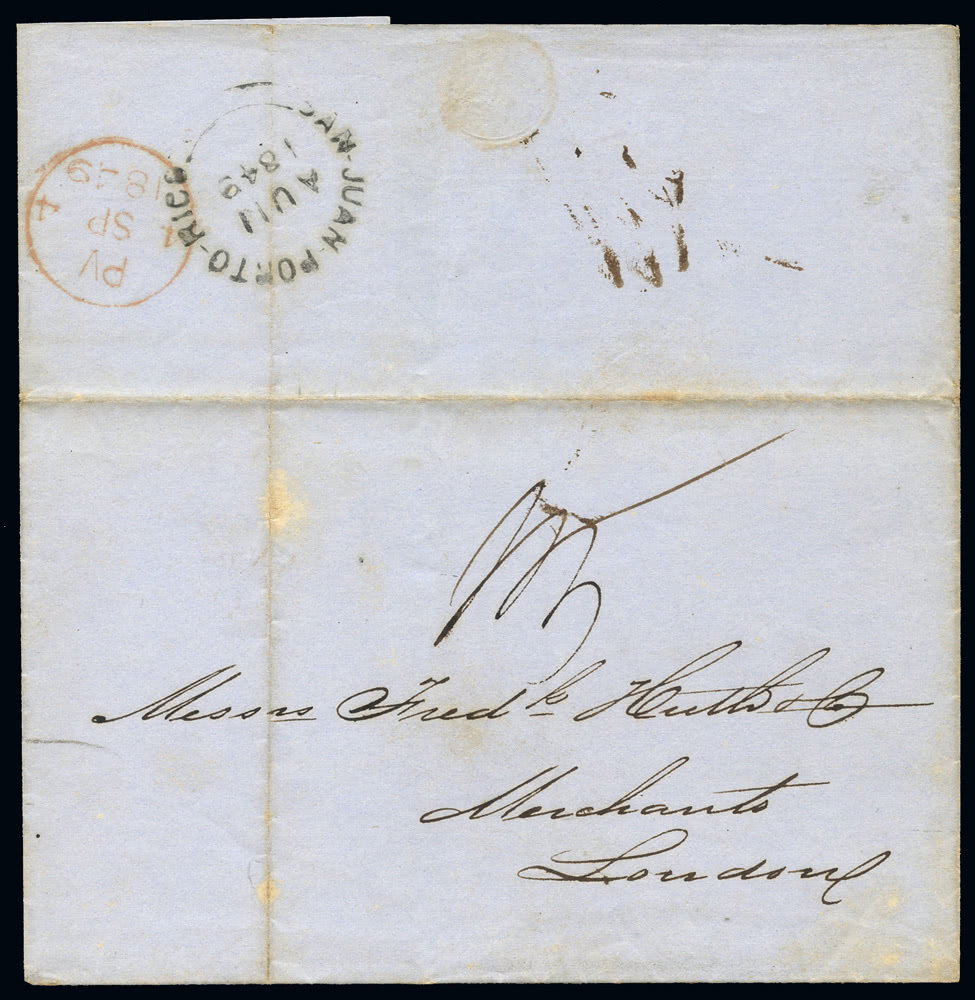 SAN-JUAN-PORTO-RICO
AU 11
1849
PV
4 SP 4
1849
Messrs Fredk Huth & Co
Merchants
London